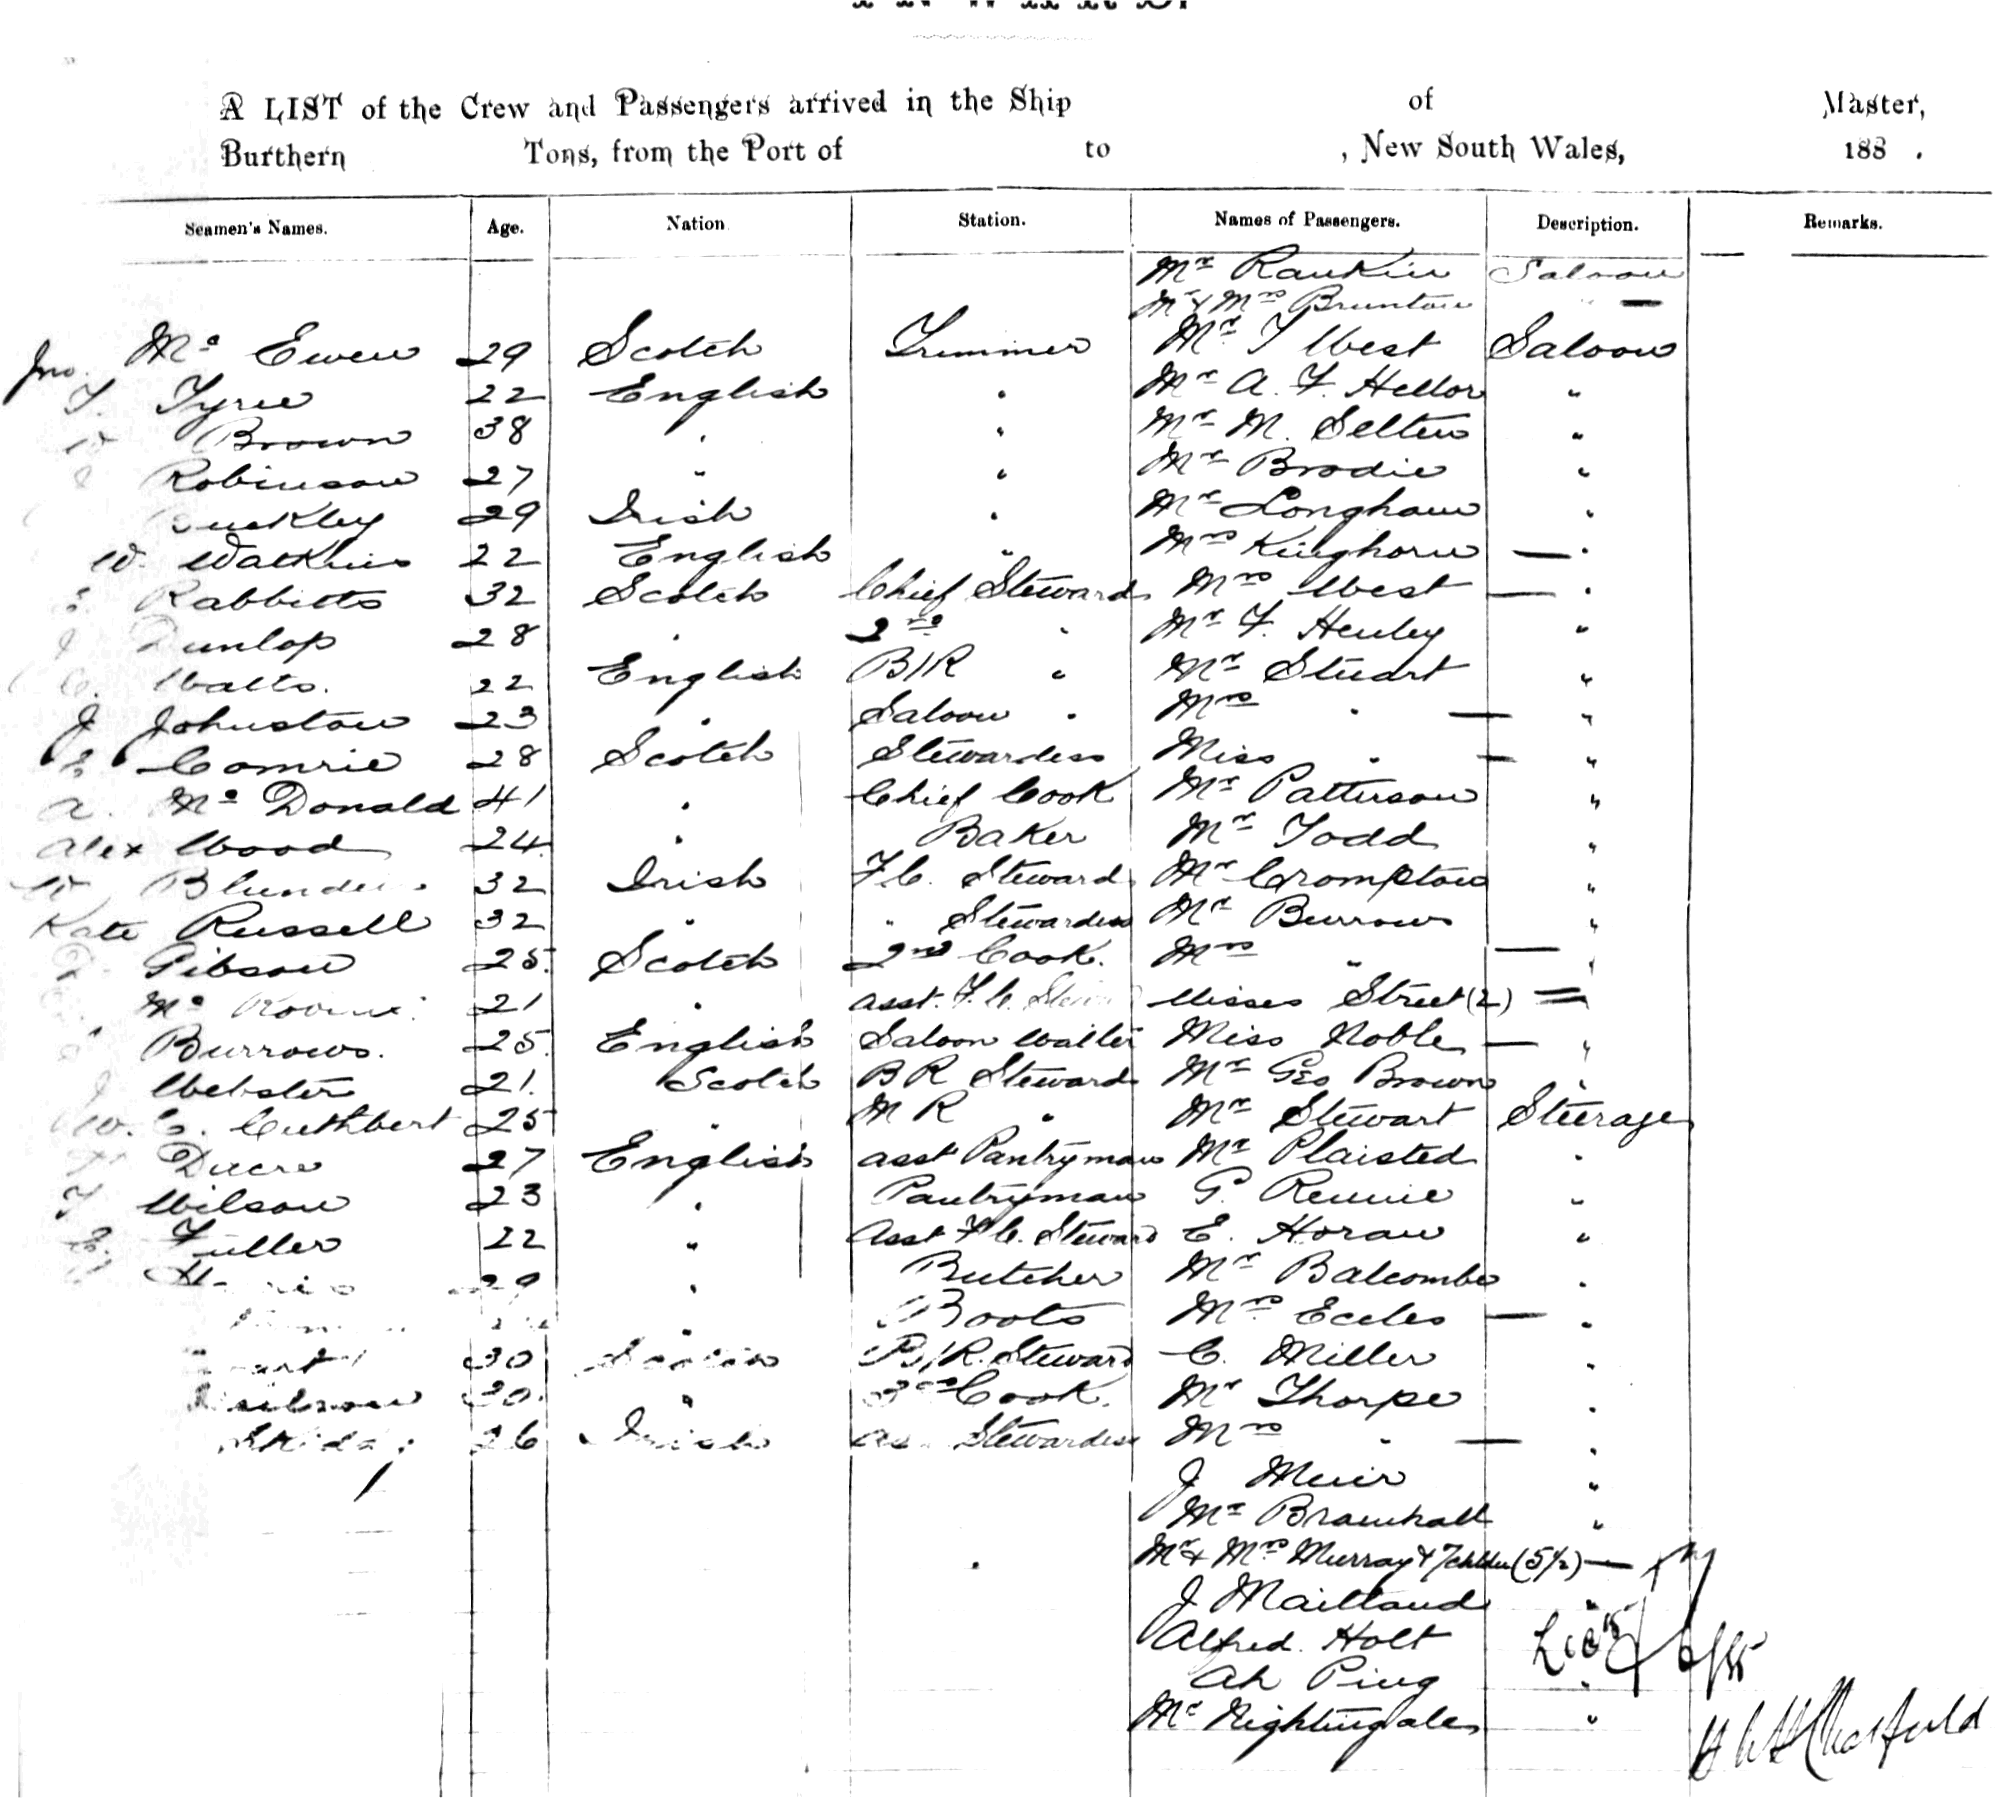 A LIST of the Crew and Passengers arrived in the Ship of Master,
Burthern Tons, from the Port of to , New South Wales, 188 .
Seamen's Names. Age. Nation Station. Names of Passengers. Description. Remarks.
Mr Rankin Saloon
Mr & Mrs Brunton " —
Jno. Mc Ewen 29 Scotch Trimmer Mr T West Saloon
T. Tyree 22 English " Mr A. F. Hellor "
W Brown 38 " " Mr M. Selten "
Robinson 27 " " Mr Brodie "
Buckley 29 Irish " Mr Longham "
W. Watkins 22 English " Mrs Kinghorn — "
Rabbitts 32 Scotch Chief Steward Mrs West — "
J Dunlop 28 " 2nd " Mr F. Henley "
C. Watts. 22 English B/R " Mr Stuart "
J Johnston 23 " Saloon " Mrs " — "
E Comrie 28 Scotch Stewardess Miss " — "
A. Mc Donald 41 " Chief Cook Mr Patterson "
Alex Wood 24 " Baker Mr Todd "
W 32 Irish F.C. Steward Mr Crompton "
Kate Russell 32 " " Stewardess Mr Burrows "
Gibson 25. Scotch 2nd Cook. Mrs " — "
Mc 21 " Asst. F.C. Misses Street (2) =
Burrows. 25. English Saloon Waiter Miss Noble — "
J Webster 21. Scotch B R Steward Mr Geo Brown "
W. C. Cuthbert 25 " M R " Mr Stewart Steerage
27 English Asst Pantryman Mr Plaisted "
T Wilson 23 " Pantryman G. Rennie "
E. Fuller 22 " Asst F.C. Steward E. Horan "
29 " Butcher Mr Balcombe "
" Boots Mrs Eccles — "
30 Scotch B/R. Steward C. Miller "
30. " Cook. Mr Thorpe "
26 Irish As. Stewardess Mrs " — "
J Muir "
Mr Bramhall "
Mr & Mrs Murray & 7 childn (5½) —
J Maitland "
Alfred. Holt
Ah Ping "
Mr Nightingale "